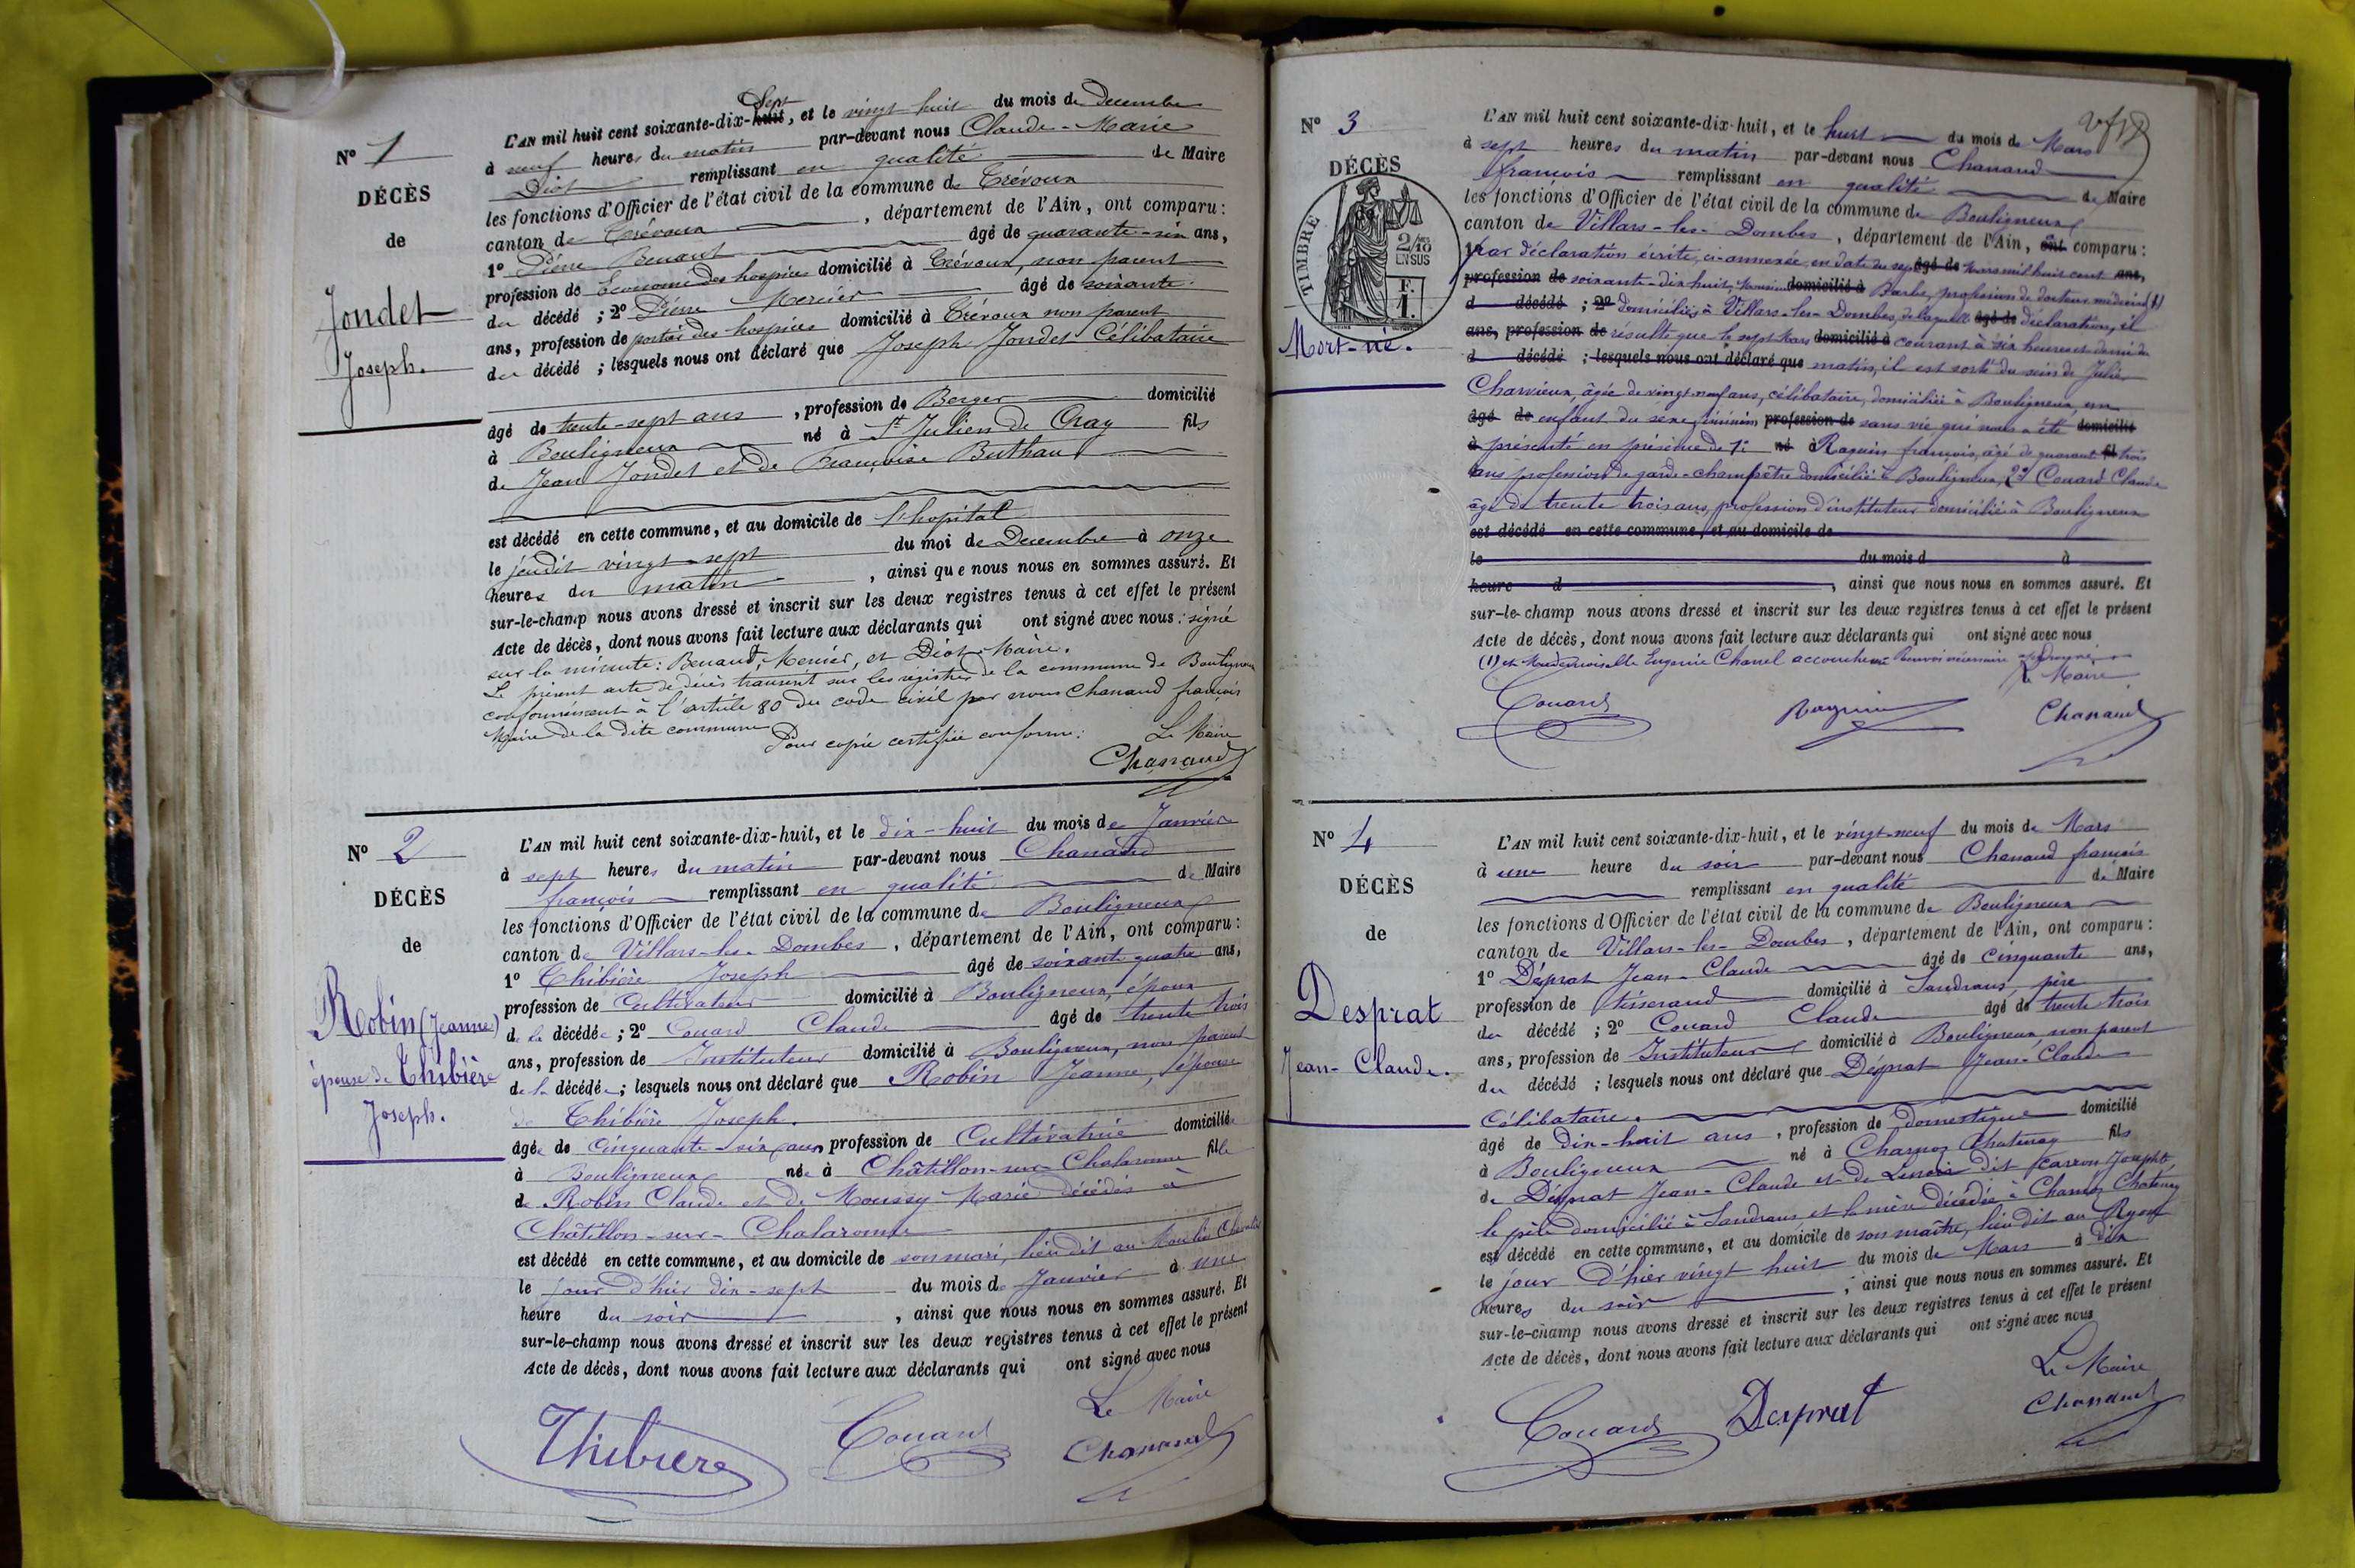 N° 1
DÉCÈS
de
Jondet
Joseph.
Sept
L'AN mil huit cent soixante-dix-huit, et le vingt huit du mois de Decembre
à neuf heures du matin par-devant nous Claude-Marie
Diot remplissant en qualité de Maire
les fonctions d'Officier de l'état civil de la commune de Trévoux
canton de Trévoux, département de l'Ain, ont comparu :
1° Pierre Benaud âgé de quarante-six ans,
profession de Econome des hospices domicilié à Trévoux, non parent
du décédé ; 2° Pierre Mercier âgé de soixante
ans, profession de portier des hospices domicilié à Trévoux non parent
du décédé ; lesquels nous ont déclaré que Joseph Jondet Célibataire
âgé de trente-sept ans, profession de Berger domicilié
à Bouligneux né à St Julien de Cray fils
de Jean Jondet et de Françoise Buthaud
est décédé en cette commune, et au domicile de l'hopital
le jeudit vingt-sept du moi de Decembre à onze
heures du matin, ainsi que nous nous en sommes assuré. Et
sur-le-champ nous avons dressé et inscrit sur les deux registres tenus à cet effet le présent
Acte de décès, dont nous avons fait lecture aux déclarants qui ont signé avec nous : signé
sur la minute : Benaud, Mercier, et Diot Maire.
Le présent acte de décès transcrit sur les registres de la commune de Bouligneux
conformément à l'article 80 du code civil par nous Chanaud françois
Maire de la dite commune
Pour copie certifiée conforme : Le Maire
Chanaud
N° 2
DÉCÈS
de
Robin (Jeanne)
épouse de Thibière
Joseph.
L'AN mil huit cent soixante-dix-huit, et le dix-huit du mois de Janvier
à sept heures du matin par-devant nous Chanaud
françois remplissant en qualité de Maire
les fonctions d'Officier de l'état civil de la commune de Bouligneux
canton de Villars-les-Dombes, département de l'Ain, ont comparu :
1° Thibière Joseph âgé de soixante quatre ans,
profession de Cultivateur domicilié à Bouligneux, époux
de la décédée ; 2° Couard Claude âgé de trente trois
ans, profession de Instituteur domicilié à Bouligneux, non parent
de la décédée ; lesquels nous ont déclaré que Robin Jeanne, épouse
de Thibière Joseph.
âgée de Cinquante-six ans profession de Cultivatrice domiciliée
à Bouligneux née à Châtillon-sur-Chalaronne fille
de Robin Claude et de Moussy Marie décédés à
Châtillon-sur-Chalaronne
est décédé en cette commune, et au domicile de son mari, lieu dit au Moulin Chevalier
le jour d'hier dix-sept du mois de Janvier à une
heure du soir, ainsi que nous nous en sommes assuré. Et
sur-le-champ nous avons dressé et inscrit sur les deux registres tenus à cet effet le présent
Acte de décès, dont nous avons fait lecture aux déclarants qui ont signé avec nous
Le Maire
Thibiere Couard Chanaud
N° 3
DÉCÈS
TIMBRE
2/10
EN SUS
F.
1.
Mort-né.
L'AN mil huit cent soixante-dix-huit, et le huit du mois de Mars
à sept heures du matin par-devant nous Chanaud
françois remplissant en qualité de Maire
les fonctions d'Officier de l'état civil de la commune de Bouligneux
canton de Villars-les-Dombes, département de l'Ain, ont comparu :
Par déclaration écrite, ci-annexée, en date du sept âgé de Mars mil huit cent ans,
profession de soixante-dix-huit, Monsieur domicilié à Barbe, profession de docteur médecin (1)
d décédé ; 2° domiciliés à Villars-les-Dombes, de laquelle âgé de déclaration, il
ans, profession de résulte que le sept Mars domicilié à courant à six heures et demie du
d décédé ; lesquels nous ont déclaré que matin, il est sorti du sein de Julie
Charvieux, âgée de vingt neuf ans, célibataire, domiciliée à Bouligneux, un
âgé de enfant du sexe féminin profession de sans vie qui nous a été domicilié
à présenté en présence de 1° né à Raguin françois, âgé de quarante fil trois
ans profession de garde-champêtre domicilié à Bouligneux, 2° Couard Claude
âgé de trente trois ans, profession d'instituteur domicilié à Bouligneux
est décédé en cette commune, et au domicile de
le du mois d à
heure d, ainsi que nous nous en sommes assuré. Et
sur-le-champ nous avons dressé et inscrit sur les deux registres tenus à cet effet le présent
Acte de décès, dont nous avons fait lecture aux déclarants qui ont signé avec nous
(1) et Mademoiselle Eugénie Chanel accoucheuse Renvoi nécessaire
Le Maire
Couard Raguin Chanaud
N° 4
DÉCÈS
de
Desprat
Jean-Claude.
L'AN mil huit cent soixante-dix-huit, et le vingt-neuf du mois de Mars
à une heure du soir par-devant nous Chanaud françois
remplissant en qualité de Maire
les fonctions d'Officier de l'état civil de la commune de Bouligneux
canton de Villars-les-Dombes, département de l'Ain, ont comparu :
1° Désprat Jean-Claude âgé de cinquante ans,
profession de tisserand domicilié à Sandrans, père
du décédé ; 2° Couard Claude âgé de trente trois
ans, profession de Instituteur domicilié à Bouligneux non parent
du décédé ; lesquels nous ont déclaré que Désprat Jean-Claude
Célibataire.
âgé de dix-huit ans, profession de domestique domicilié
à Bouligneux né à Charnoz Chatenay fils
de Désprat Jean-Claude et de Lenoir dit Carron Josephte
le père domicilié à Sandrans et la mère décédée à Charnoz Chatenay
est décédé en cette commune, et au domicile de son maître, lieu dit au
le jour d'hier vingt huit du mois de Mars à dix
heures du soir, ainsi que nous nous en sommes assuré. Et
sur-le-champ nous avons dressé et inscrit sur les deux registres tenus à cet effet le présent
Acte de décès, dont nous avons fait lecture aux déclarants qui ont signé avec nous
Le Maire
Couard Desprat Chanaud